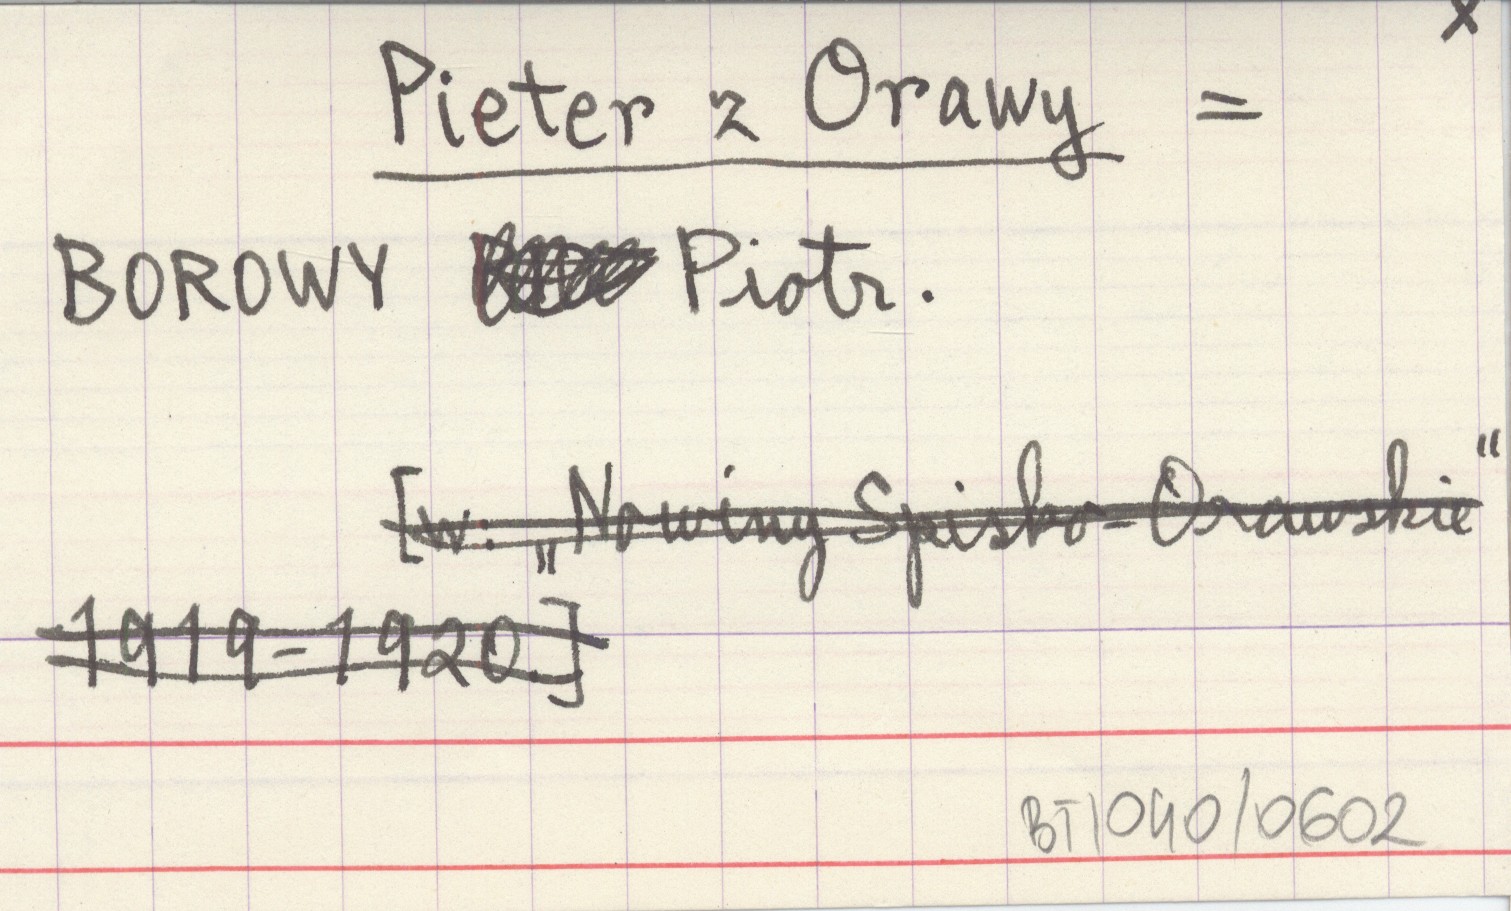 x
Pieter z Orawy =
BOROWY Piotr.
[w: „Nowiny Spisko-Orawskie"
1919-1920.]
BT1040/0602